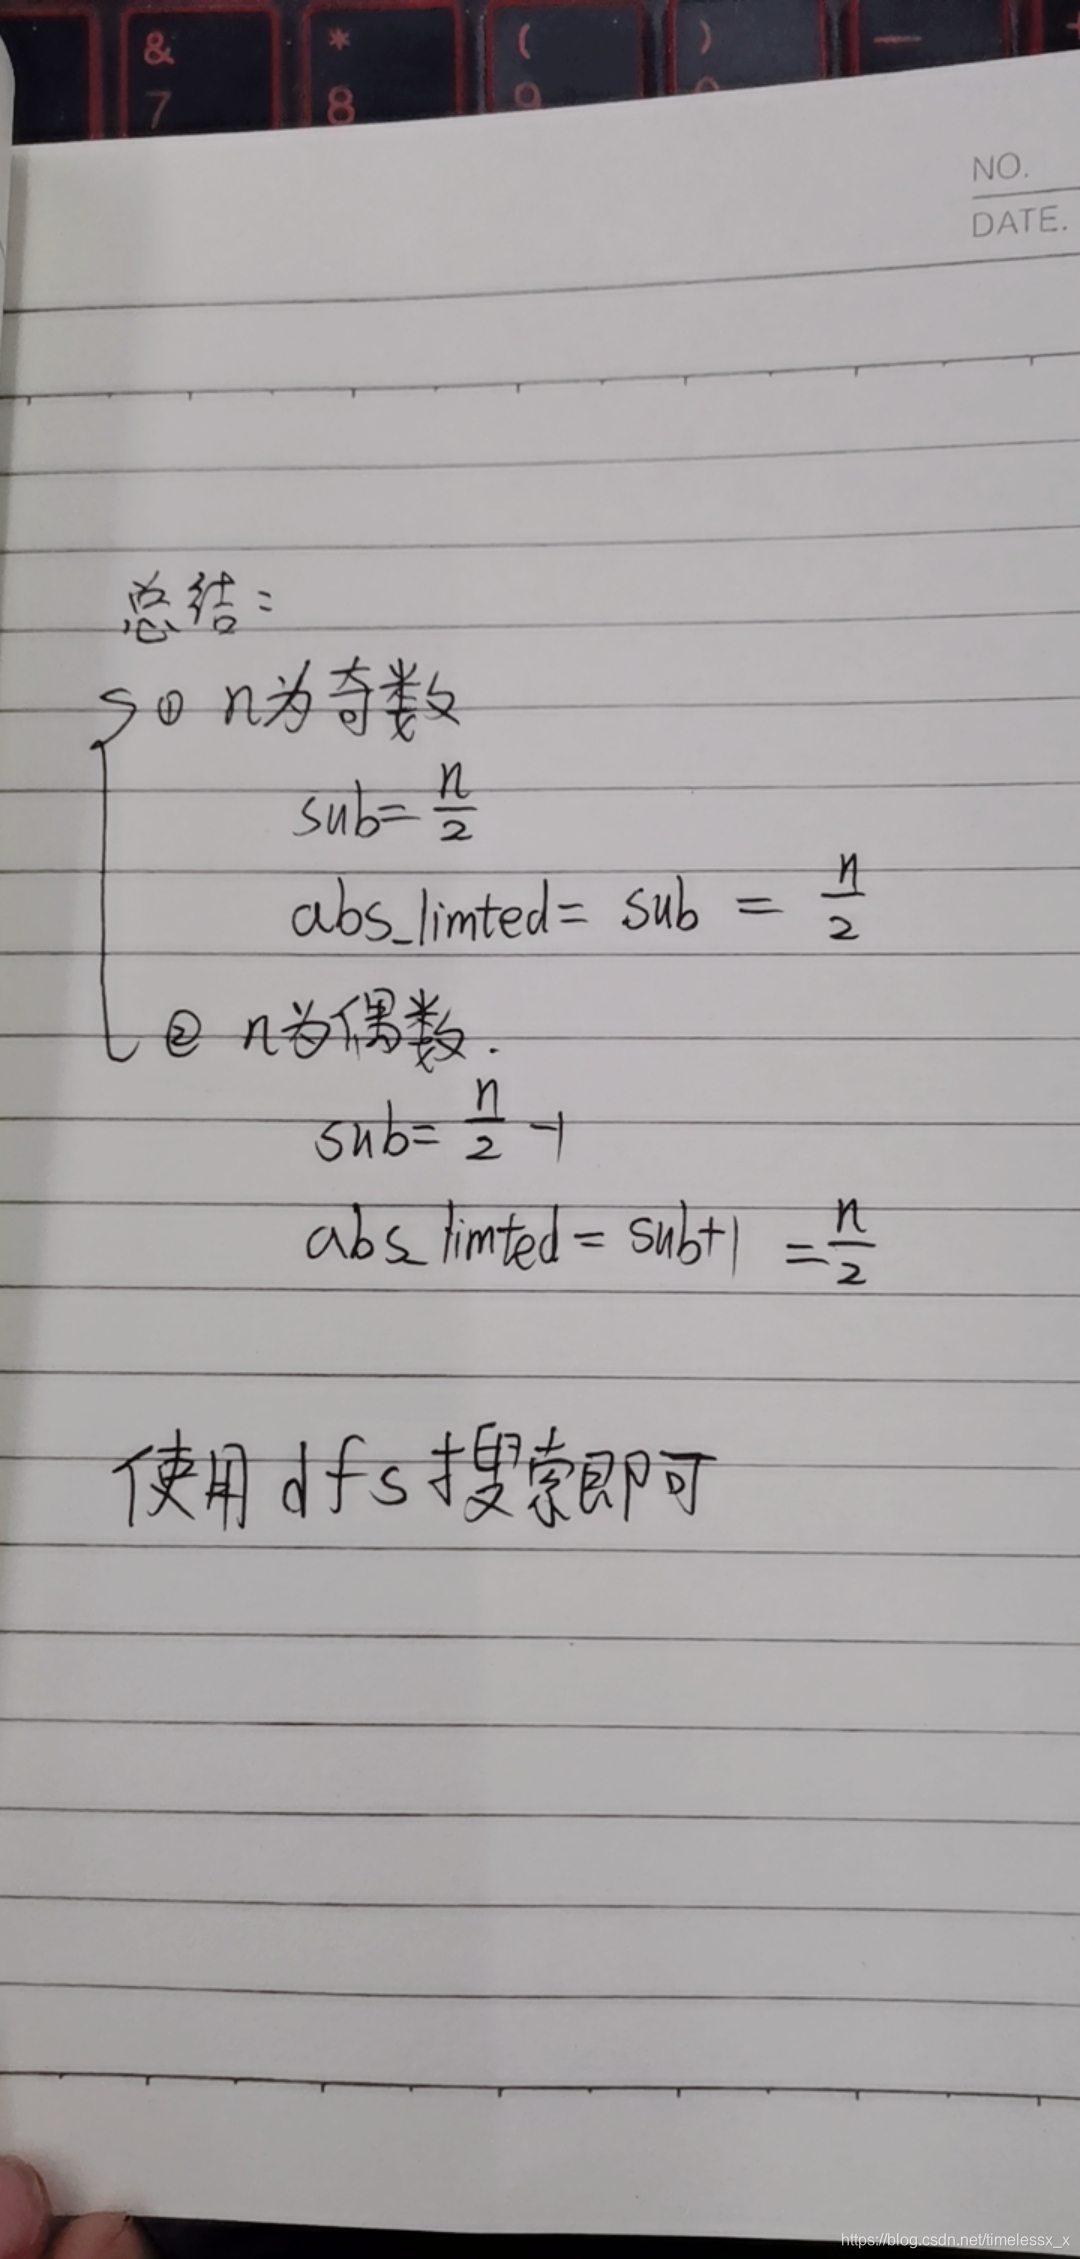 &
7
*
8
(
9
)
NO.
DATE.
总结:
① n为奇数
sub=n/2
abs_limted= sub = n/2
② n为偶数.
sub=n/2-1
abs_limted = sub+1 =n/2
使用dfs搜索即可
https://blog.csdn.net/timelessx_x